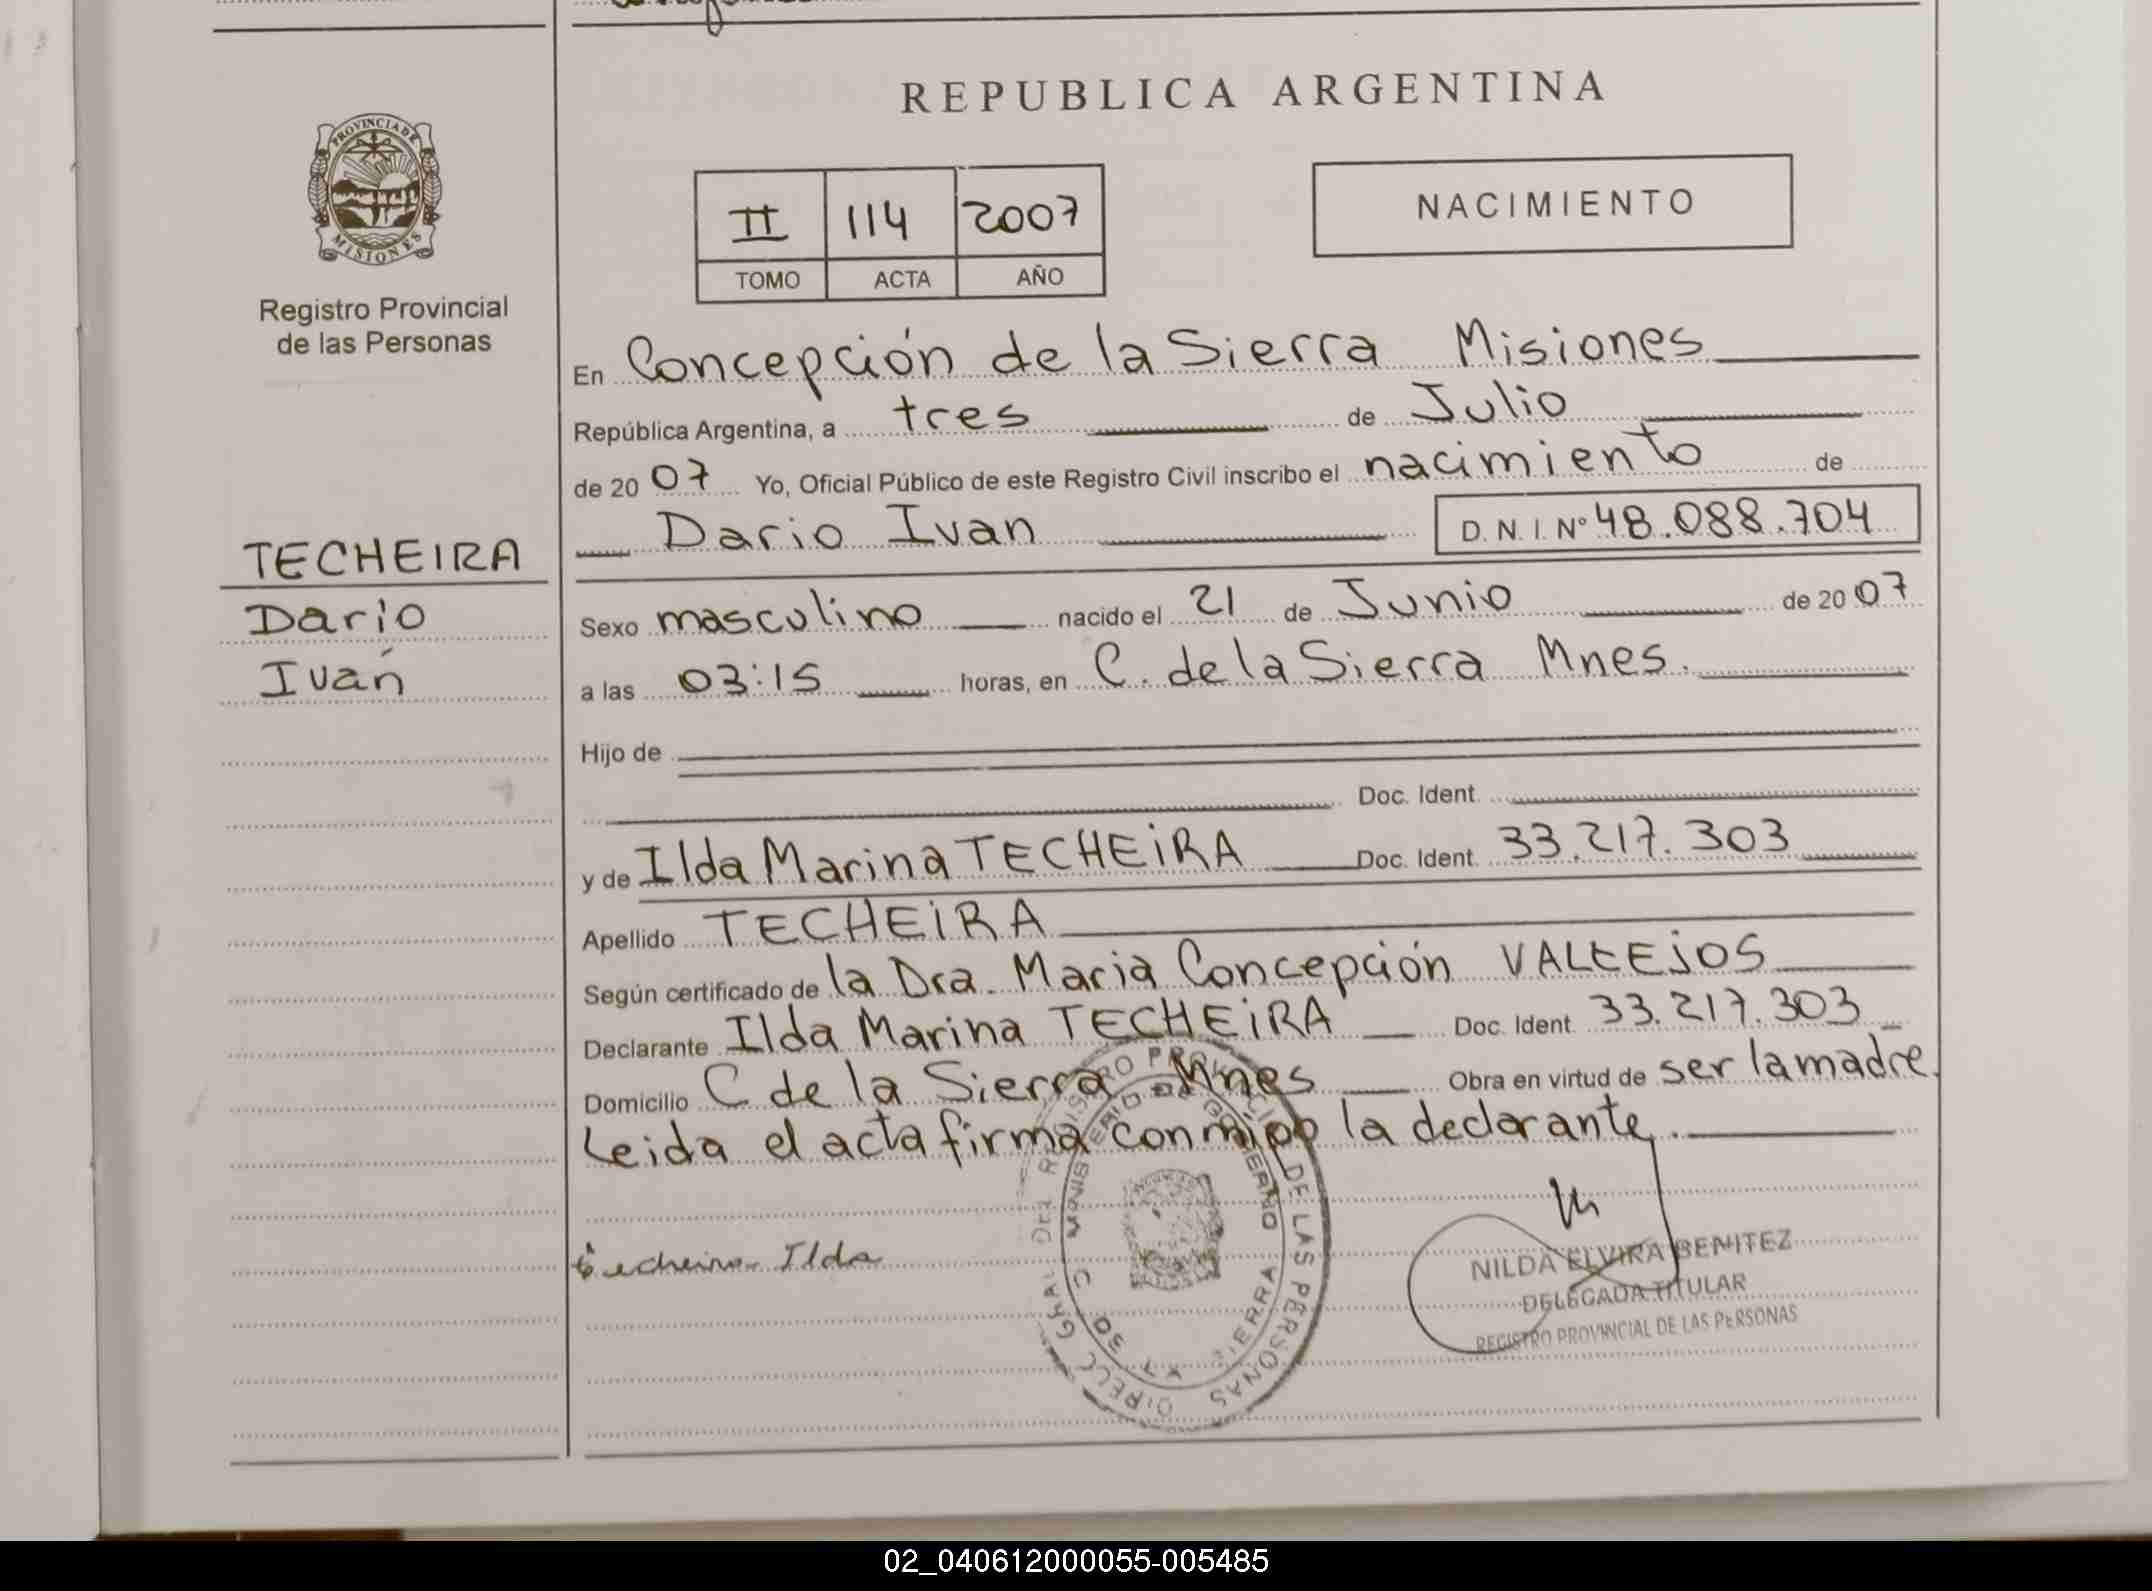 REPUBLICA ARGENTINA
PROVINCIA DE
MISIONES
Registro Provincial
de las Personas
II 114 2007
TOMO ACTA AÑO
NACIMIENTO
TECHEIRA
Dario
Iván
En Concepción de la Sierra Misiones
República Argentina, a tres de Julio
de 2007 Yo, Oficial Público de este Registro Civil inscribo el nacimiento de
Dario Ivan D.N.I.Nº 48.088.704
Sexo masculino nacido el 21 de Junio de 2007
a las 03:15 horas, en C. de la Sierra Mnes.
Hijo de
Doc. Ident.
y de Ilda Marina TECHEiRA Doc. Ident. 33.217.303
Apellido TECHEiRA
Según certificado de la Dra. Maria Concepción VALLEJOS
Declarante Ilda Marina TECHEiRA Doc. Ident. 33.217.303
Domicilio C de la Sierra Mnes Obra en virtud de ser la madre.
Leida el acta firma conmigo la declarante.
Techeira Ilda
DIRECC GRAL DEL REGISTRO PROVINCIAL DE LAS PERSONAS
MINISTERIO DE GOBIERNO
SIERRA
NILDA ELVIRA BENITEZ
DELEGADA TITULAR
REGISTRO PROVINCIAL DE LAS PERSONAS
02_040612000055-005485